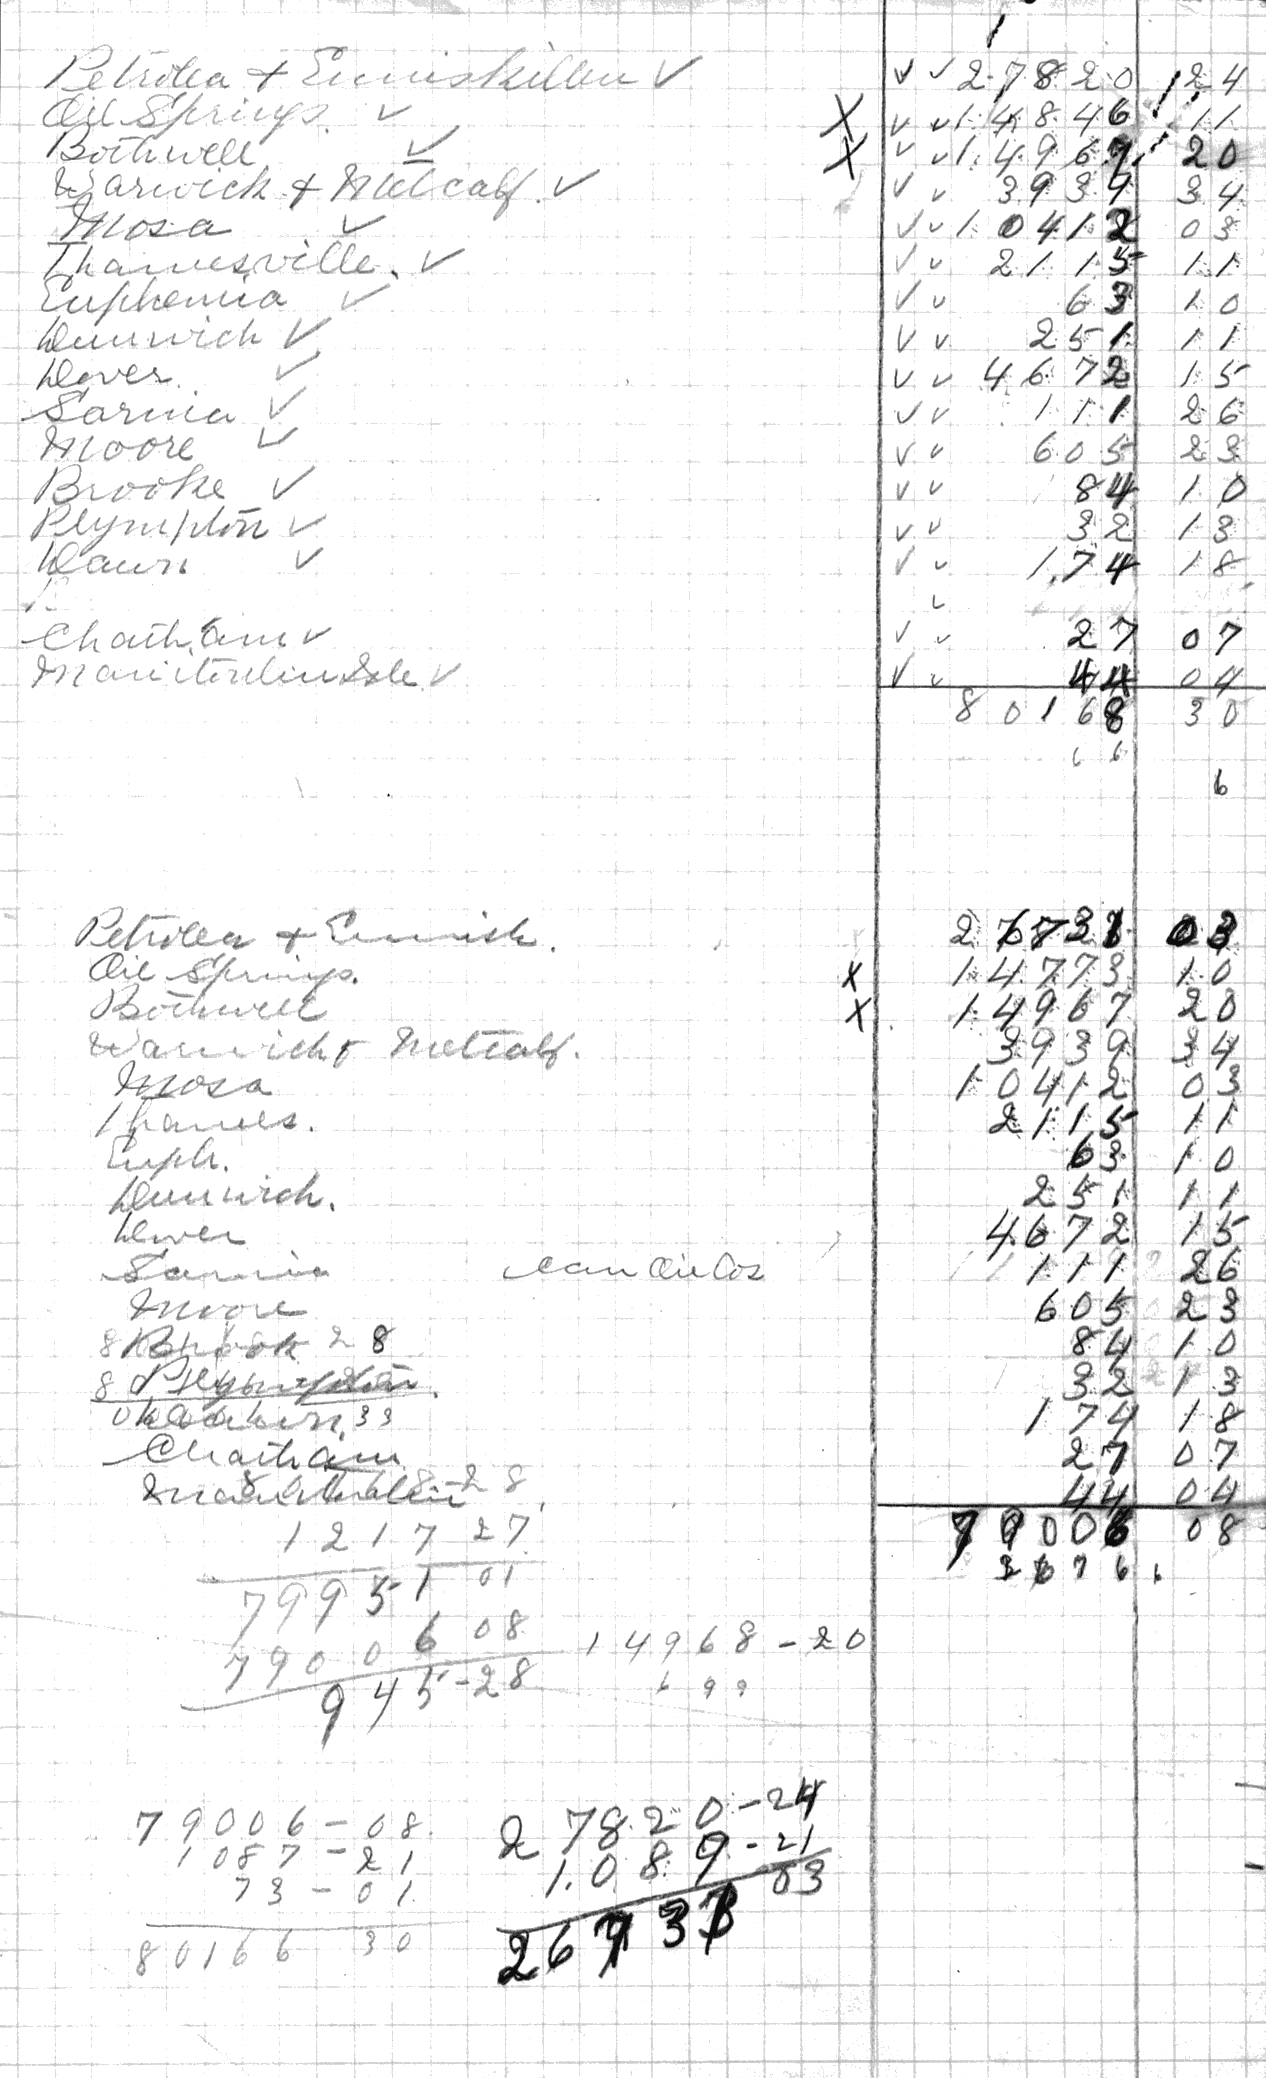 Petrolea + Enniskillen ✓ ✓ ✓ 27820 24
Oil Springs. ✓ X ✓ ✓ 14846 11
Bothwell ✓ X ✓ ✓ 14967 20
Warwick + Metcalf. ✓ ✓ ✓ 3934 34
Mosa ✓ ✓ ✓ 10412 03
Thamesville. ✓ ✓ ✓ 2115 11
Euphemia ✓ ✓ ✓ 63 10
Dunwich ✓ ✓ ✓ 251 11
Dover. ✓ ✓ ✓ 4672 15
Sarnia ✓ ✓ ✓ 111 26
Moore ✓ ✓ ✓ 605 23
Brooke ✓ ✓ ✓ 84 10
Plympton ✓ ✓ ✓ 32 13
Dawn ✓ ✓ ✓ 174 18
✓
Chatham ✓ ✓ ✓ 27 07
Manitoulin Isle ✓ ✓ ✓ 44 04
80168 30
6 6
6
Petrolea + Ennisk. 03
Oil Springs. X 14773 10
Bothwell X 14967 20
Warwick + Metcalf. 3939 34
Mosa 10412 03
Thames. 2115 11
Euph. 63 10
Dunwich. 251 11
Dover 4672 15
Sarnia Can Oil Cos 111 26
Moore 605 23
Brook 28 84 10
Plympton. 32 13
Dawn. 33 174 18
Chatham 27 07
Manitoulin 28 44 04
79006 08
1217 27
79951 01
79006 08 14968 - 20
945 - 28 6 9 9
79006 - 08 27820 - 24
1087 - 21 1089 - 21
73 - 01 03
80166 30 26731